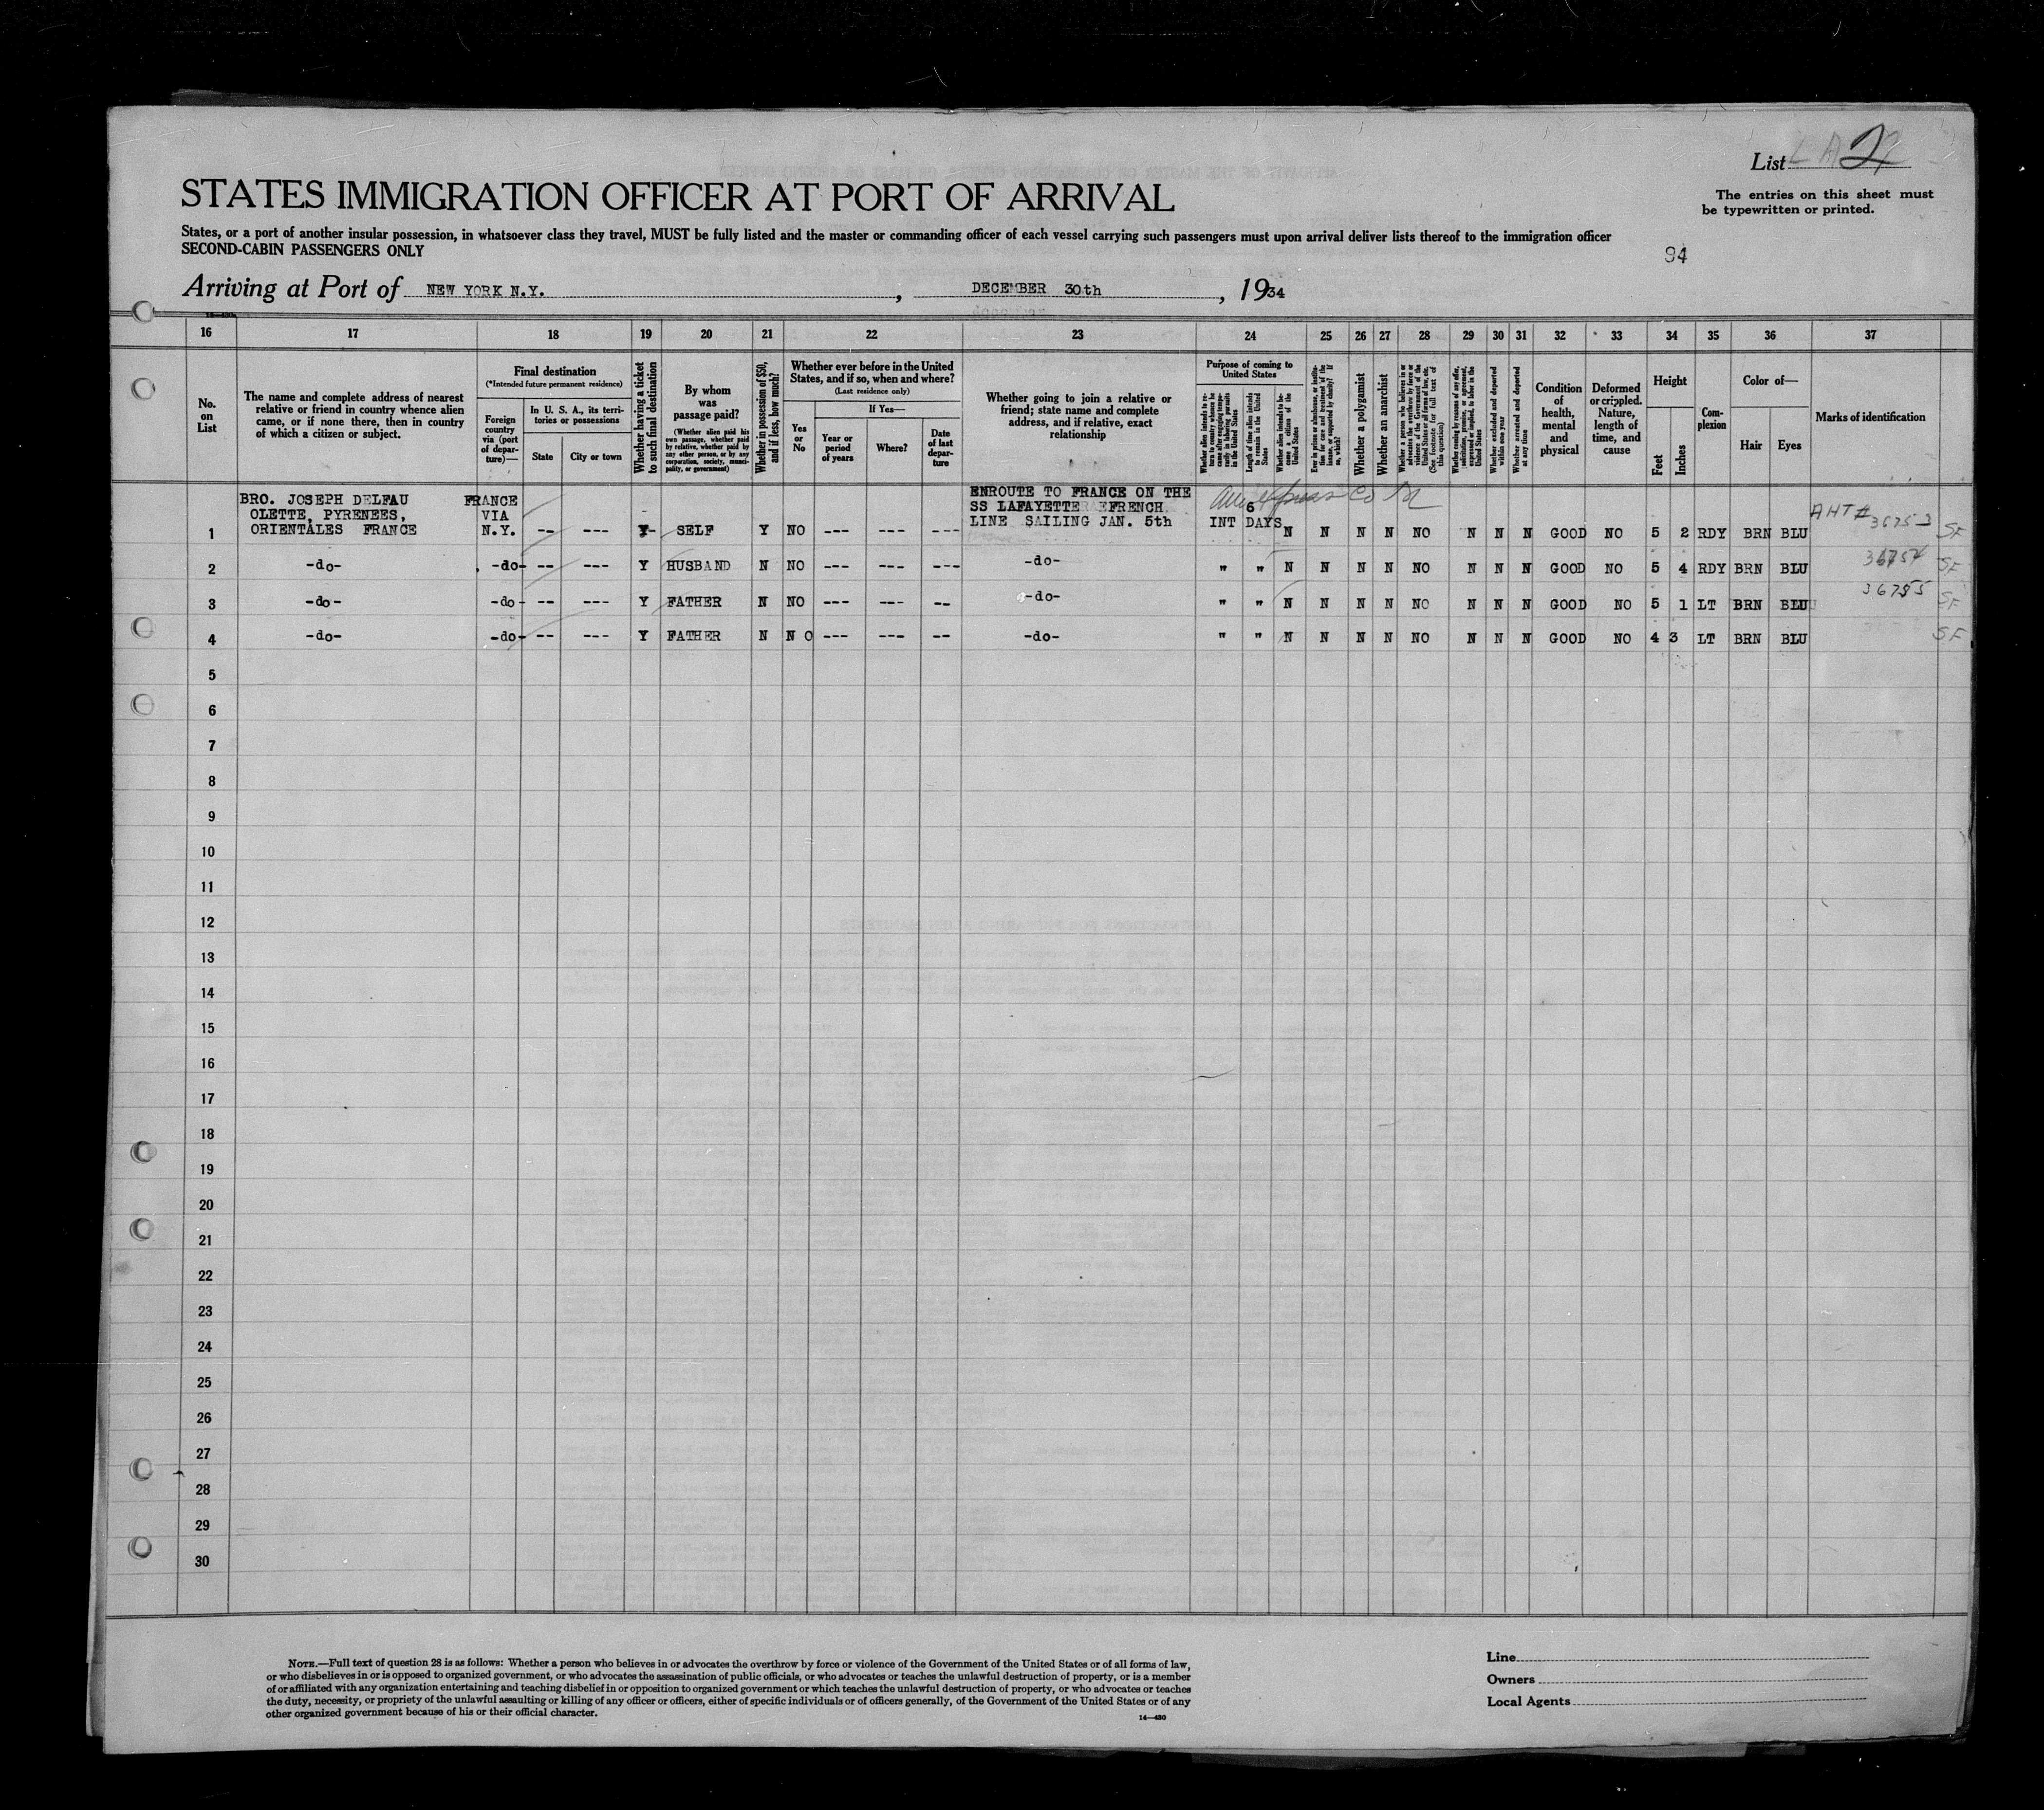 List 2
STATES IMMIGRATION OFFICER AT PORT OF ARRIVAL
The entries on this sheet must
be typewritten or printed.
States, or a port of another insular possession, in whatsoever class they travel, MUST be fully listed and the master or commanding officer of each vessel carrying such passengers must upon arrival deliver lists thereof to the immigration officer
SECOND-CABIN PASSENGERS ONLY
94
Arriving at Port of NEW YORK N.Y. , DECEMBER 30th , 1934
16 17 18 19 20 21 22 23 24 25 26 27 28 29 30 31 32 33 34 35 36 37
No.
on
List
The name and complete address of nearest
relative or friend in country whence alien
came, or if none there, then in country
of which a citizen or subject.
Final destination
(*Intended future permanent residence)
Foreign
country
via (port
of depar-
ture)—
In U. S. A., its terri-
tories or possessions
State
City or town
Whether having a ticket
to such final destination
By whom
was
passage paid?
(Whether alien paid his
own passage, whether paid
by relative, whether paid by
any other person, or by any
corporation, society, munici-
pality, or government)
Whether in possession of $50,
and if less, how much?
Whether ever before in the United
States, and if so, when and where?
(Last residence only)
Yes
or
No
If Yes—
Year or
period
of years
Where?
Date
of last
depar-
ture
Whether going to join a relative or
friend; state name and complete
address, and if relative, exact
relationship
Purpose of coming to
United States
Whether alien intends to re-
turn to country whence he
came after engaging tempo-
rarily in laboring pursuits
in the United States
Length of time alien intends
to remain in the United
States
Whether alien intends to be-
come a citizen of the
United States
Ever in prison or almshouse, or institu-
tion for care and treatment of the
insane, or supported by charity? If
so, which?
Whether a polygamist
Whether an anarchist
Whether a person who believes in or
advocates the overthrow by force or
violence of the Government of the
United States or all forms of law, etc.
(See footnote for full text of
this question)
Whether coming by reason of any offer,
solicitation, promise, or agreement,
expressed or implied, to labor in the
United States
Whether excluded and deported
within one year
Whether arrested and deported
at any time
Condition
of
health,
mental
and
physical
Deformed
or crippled.
Nature,
length of
time, and
cause
Height
Feet
Inches
Com-
plexion
Color of—
Hair
Eyes
Marks of identification
BRO. JOSEPH DELFAU FRANCE ENROUTE TO FRANCE ON THE
OLETTE, PYRENEES, VIA SS LAFAYETTE FRENCH 6
ORIENTALES FRANCE N.Y. LINE SAILING JAN. 5th INT DAYS
1 -- --- Y SELF Y NO --- --- --- N N N N NO N N N GOOD NO 5 2 RDY BRN BLU AHT# 36753 SF
2 -do- -do- -- --- Y HUSBAND N NO --- --- --- -do- " " N N N N NO N N N GOOD NO 5 4 RDY BRN BLU 36754 SF
3 -do- -do- -- --- Y FATHER N NO --- --- -- -do- " " N N N N NO N N N GOOD NO 5 1 LT BRN BLU 36755 SF
4 -do- -do- -- --- Y FATHER N N O --- --- -- -do- " " N N N N NO N N N GOOD NO 4 3 LT BRN BLU SF
5
6
7
8
9
10
11
12
13
14
15
16
17
18
19
20
21
22
23
24
25
26
27
28
29
30
NOTE.—Full text of question 28 is as follows: Whether a person who believes in or advocates the overthrow by force or violence of the Government of the United States or of all forms of law,
or who disbelieves in or is opposed to organized government, or who advocates the assassination of public officials, or who advocates or teaches the unlawful destruction of property, or is a member
of or affiliated with any organization entertaining and teaching disbelief in or opposition to organized government or which teaches the unlawful destruction of property, or who advocates or teaches
the duty, necessity, or propriety of the unlawful assaulting or killing of any officer or officers, either of specific individuals or of officers generally, of the Government of the United States or of any
other organized government because of his or their official character.
14—430
Line
Owners
Local Agents